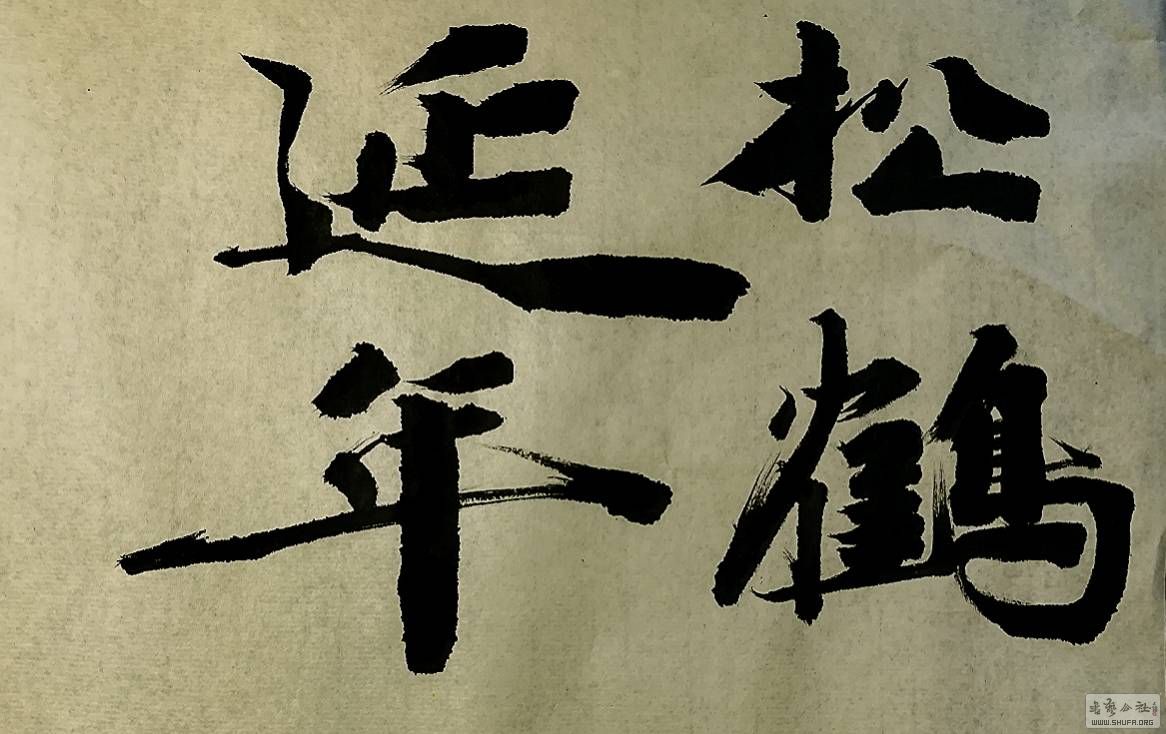 松鶴
延年
书艺公社
WWW.SHUFA.ORG